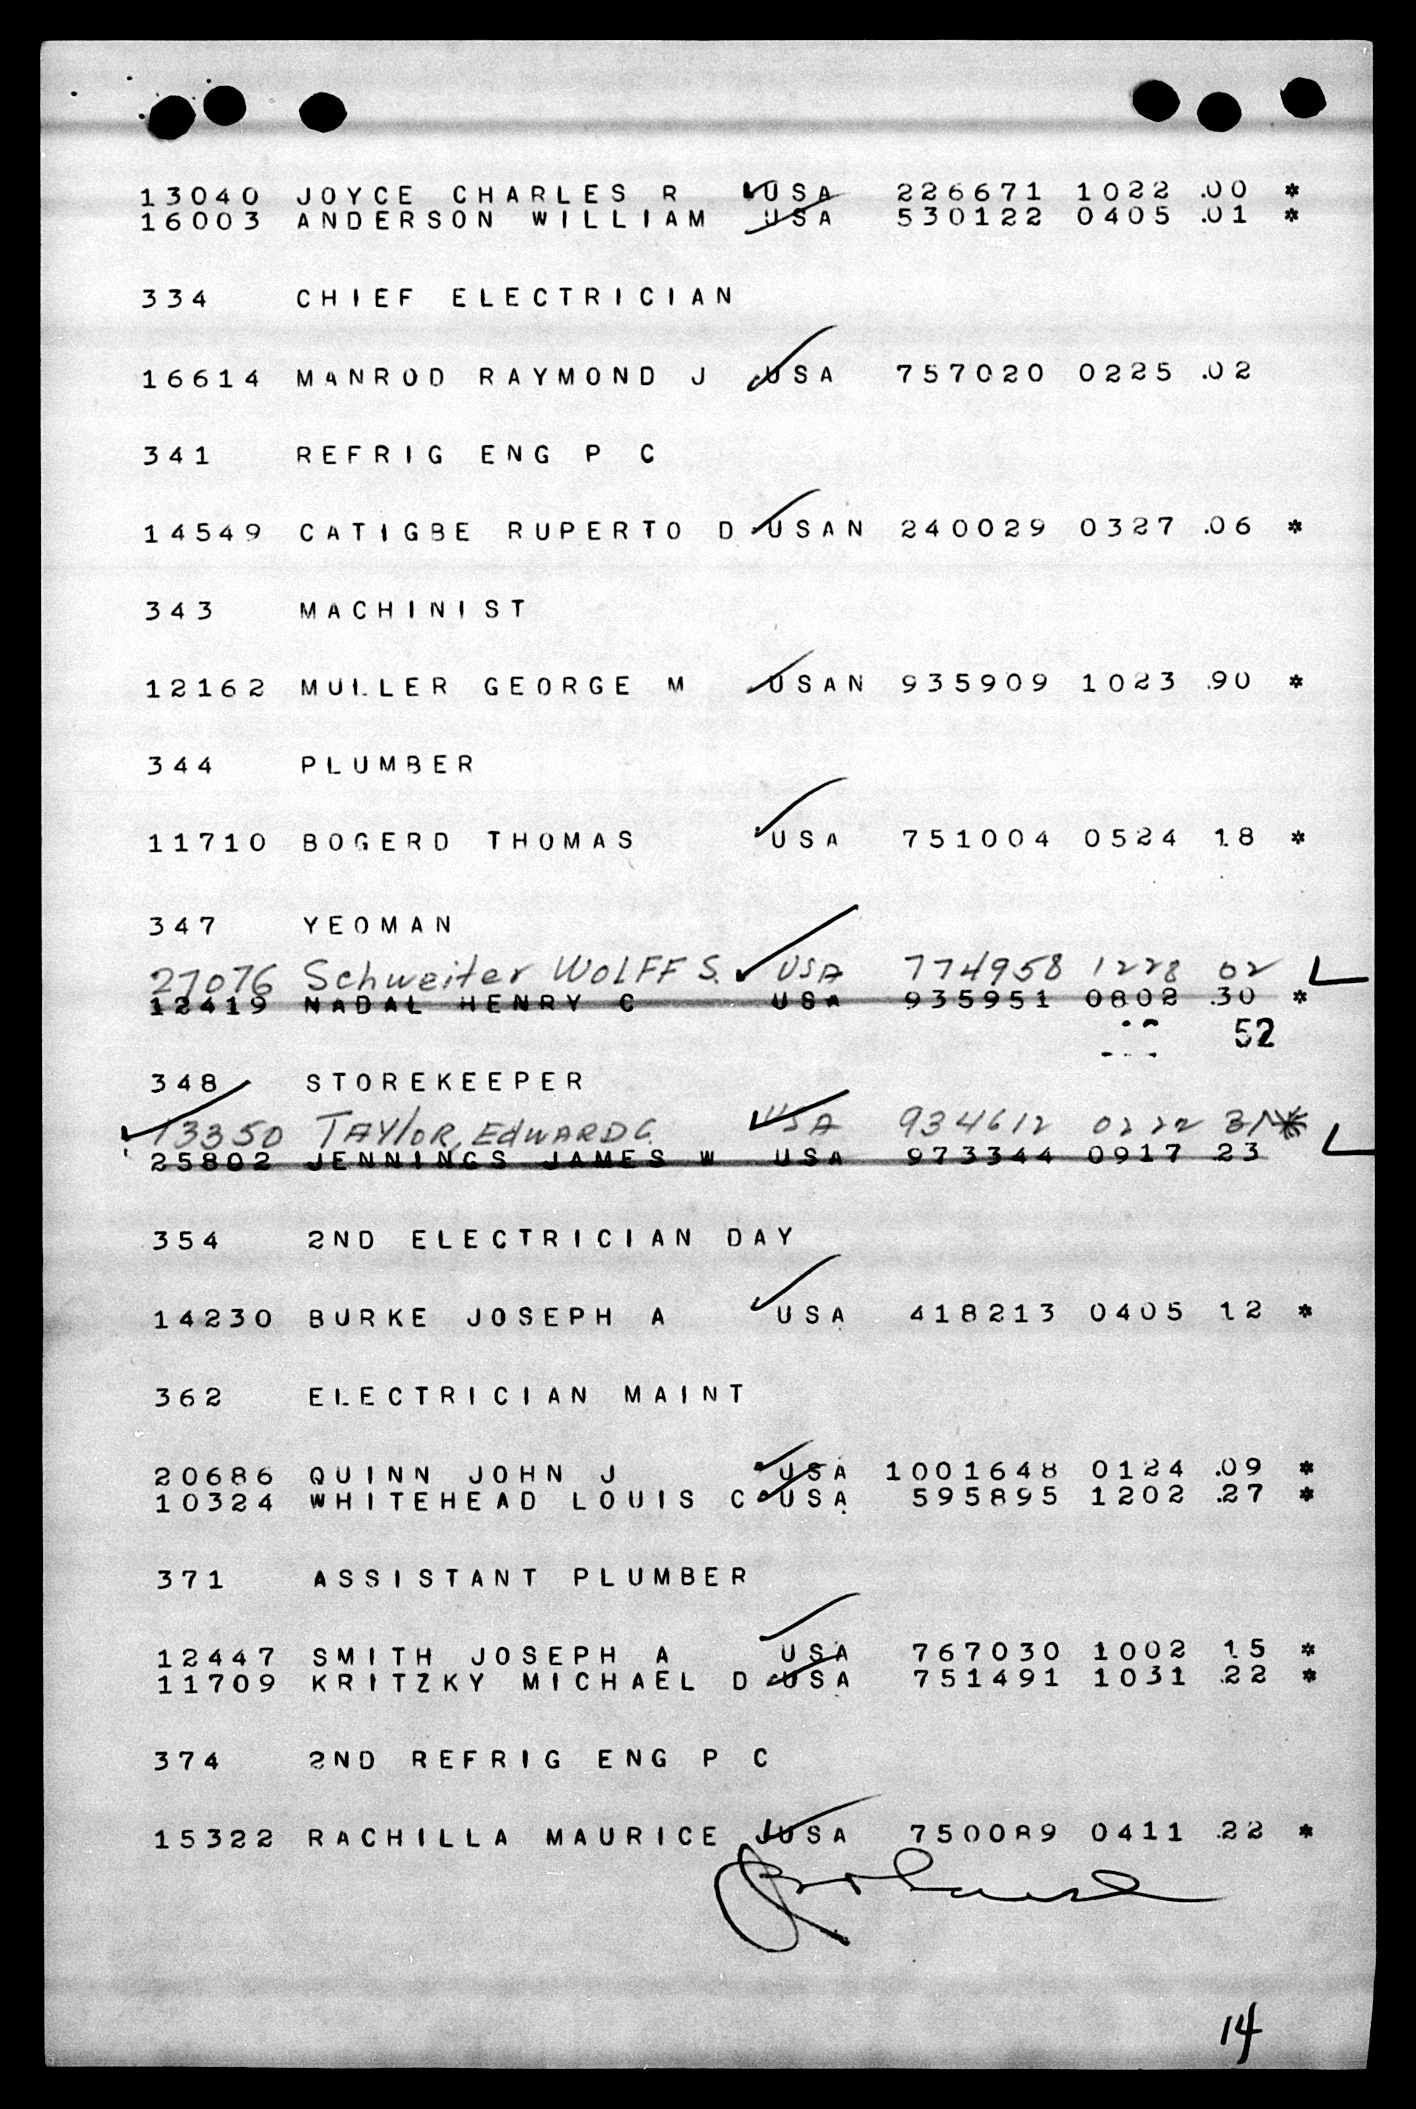 13040 JOYCE CHARLES R USA 226671 1022 .00 *
16003 ANDERSON WILLIAM USA 530122 0405 .01 *
334 CHIEF ELECTRICIAN
16614 MANROD RAYMOND J USA 757020 0225 .02
341 REFRIG ENG P C
14549 CATIGBE RUPERTO D USAN 240029 0327 .06 *
343 MACHINIST
12162 MULLER GEORGE M USAN 935909 1023 .90 *
344 PLUMBER
11710 BOGERD THOMAS USA 751004 0524 18 *
347 YEOMAN
27076 Schweiter WOLFF S. USA 774958 1228 02
12419 NADAL HENRY C USA 935951 0802 .30 *
52
348 STOREKEEPER
13350 TAYLOR, EDWARD C. USA 934612 0222 31 *
25802 JENNINGS JAMES W USA 973344 0917 23
354 2ND ELECTRICIAN DAY
14230 BURKE JOSEPH A USA 418213 0405 12 *
362 ELECTRICIAN MAINT
20686 QUINN JOHN J USA 1001648 0124 .09 *
10324 WHITEHEAD LOUIS C USA 595895 1202 .27 *
371 ASSISTANT PLUMBER
12447 SMITH JOSEPH A USA 767030 1002 15 *
11709 KRITZKY MICHAEL D USA 751491 1031 .22 *
374 2ND REFRIG ENG P C
15322 RACHILLA MAURICE J USA 750089 0411 .22 *
14